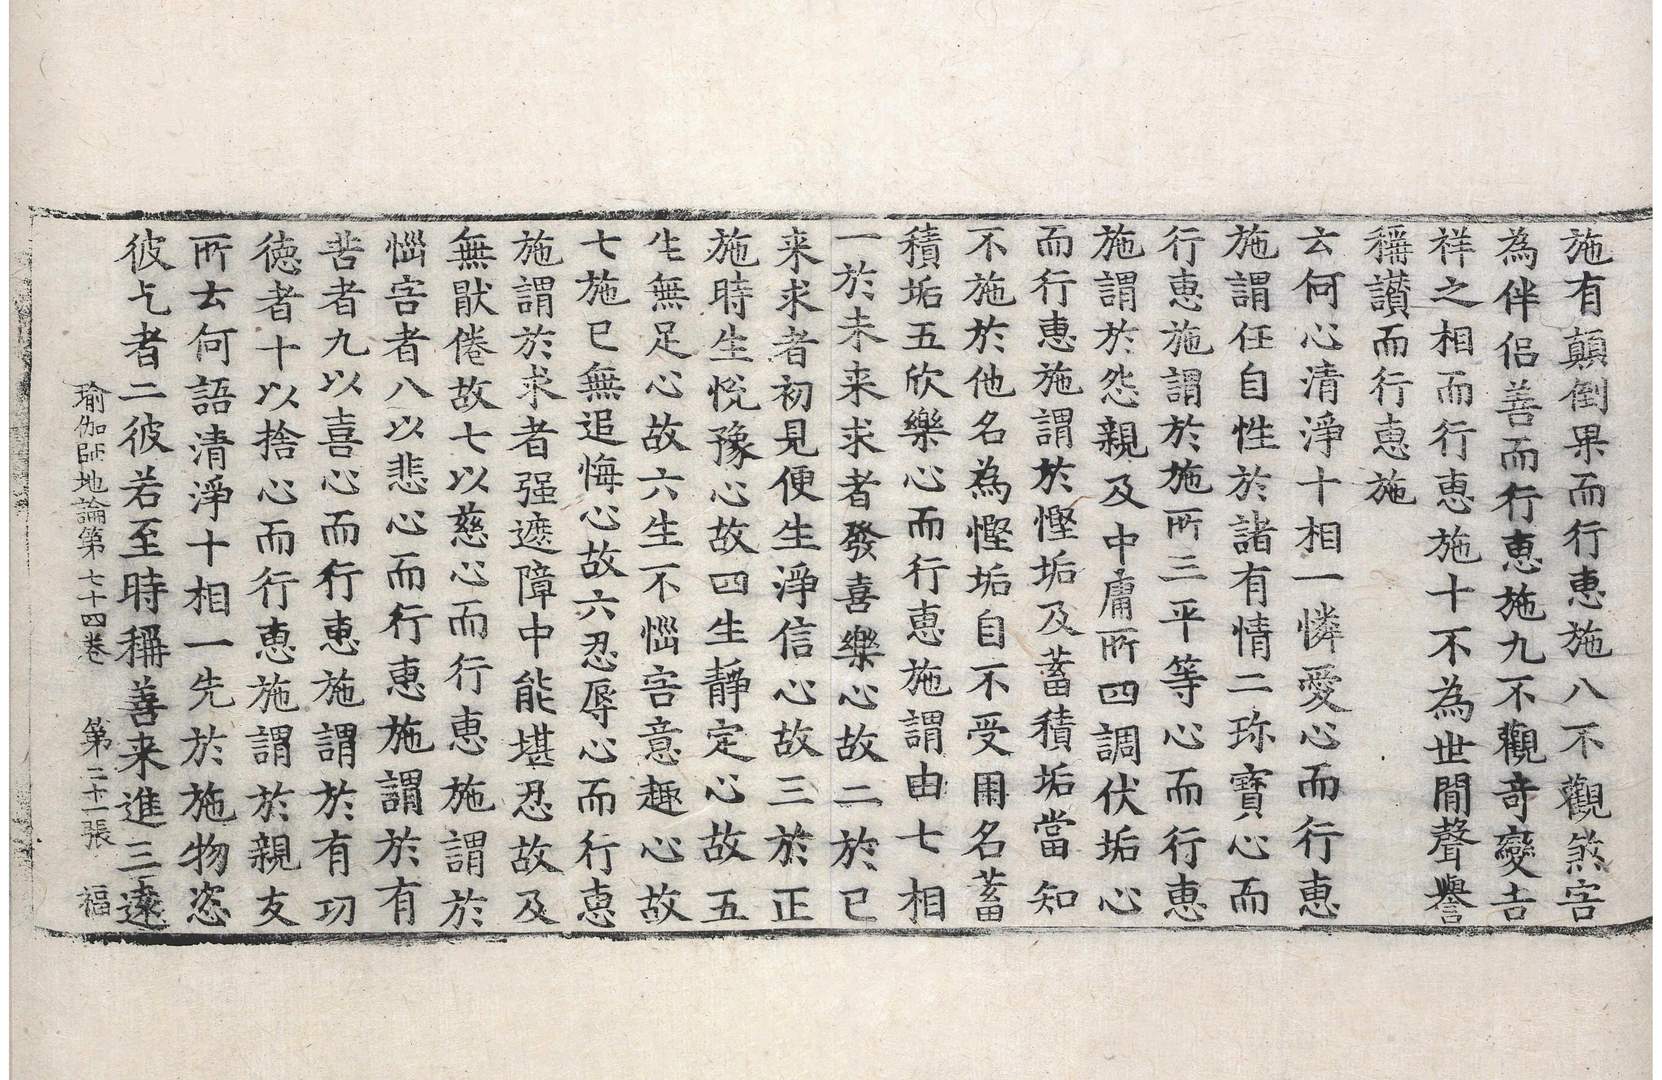 施有顛倒果而行惠施八不觀煞害
為伴侣善而行恵施九不觀竒變吉
祥之相而行恵施十不為世間聲譽
稱讃而行恵施
云何心清淨十相一憐愛心而行惠
施謂任自性於諸有情二珎寶心而
行惠施謂於施所三平等心而行惠
施謂於怨親及中庸所四調伏垢心
而行惠施謂於慳垢及蓄積垢當知
不施於他名為慳垢自不受用名蓄
積垢五欣樂心而行恵施謂由七相
一於未来求者發喜樂心故二於已
来求者初見便生淨信心故三於正
施時生悅豫心故四生靜定心故五
生無足心故六生不惱害意趣心故
七施已無追悔心故六忍辱心而行恵
施謂於求者强遮障中能堪忍故及
無猒倦故七以慈心而行恵施謂於
惱害者八以悲心而行惠施謂於有
苦者九以喜心而行恵施謂於有功
德者十以捨心而行恵施謂於親友
所云何語清淨十相一先於施物恣
彼乞者二彼若至時稱善来進三遠
瑜伽師地論第七十四卷 第二十一張 福